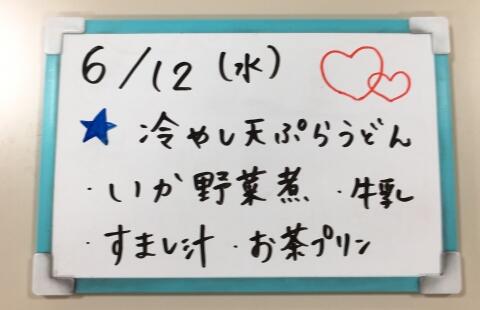 6/12(水)
★ 冷やし天ぷらうどん
・いか野菜煮 ・牛乳
・すまし汁 ・お茶プリン